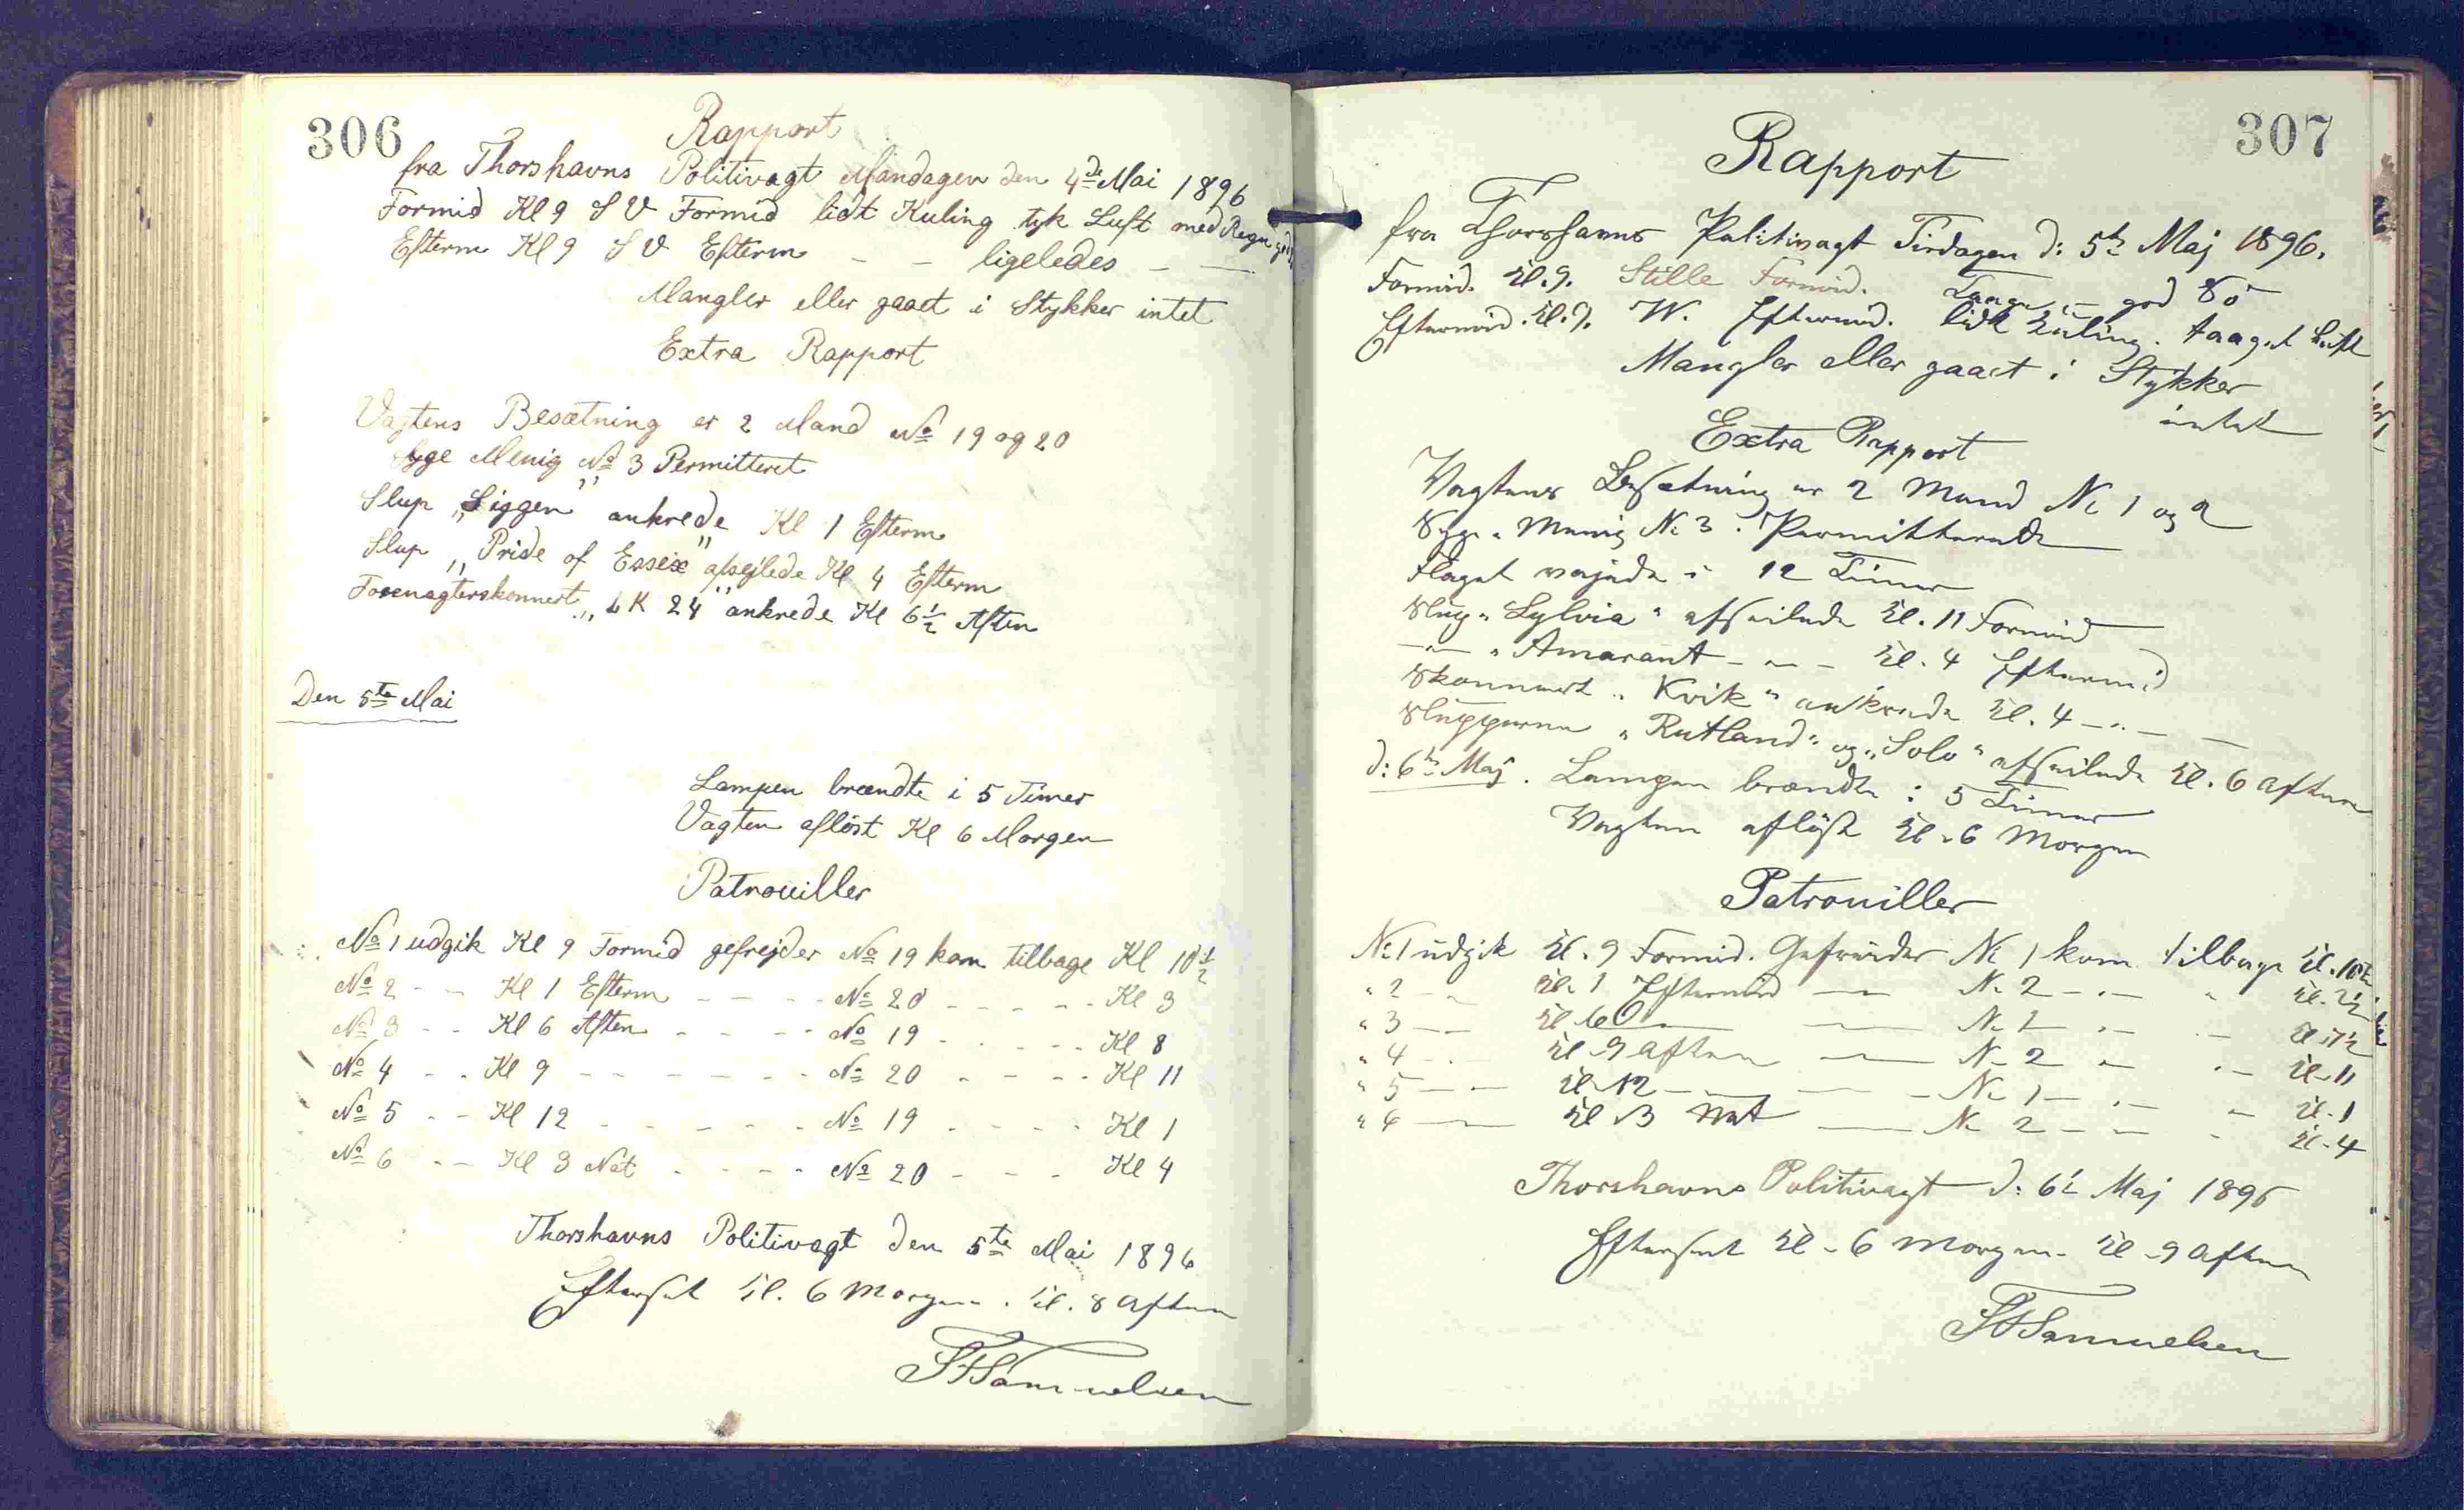 306
Rapport
fra Thorshavns Politivagt Mandagen den 4de Mai 1896
Formid Kl 9 S V Formid lidt Kuling tyk Luft med Regn
Efterm Kl 9 S V Efterm – – ligeledes – –
Mangler eller gaaet i Stykker intet
Extra Rapport
Vagtens Besætning er 2 Mand No 19 og 20
Syge Menig No 3 Permitteret
Slup „Siggen" ankrede Kl 1 Efterm
Slup „Pride of Essex" afsejlede Kl 4 Efterm
Forenagterskonnert „LK 24" ankrede Kl 6½ Aften
Den 5te Mai
Lampen brændte i 5 Timer
Vagten afløst Kl 6 Morgen
Patrouiller
No 1 udgik Kl 9 Formid gefrejder No 19 kom tilbage Kl 10½
No 2 - - Kl 1 Efterm - - - - No 20 - - - - - Kl 3
No 3 - - Kl 6 Aften - - - - No 19 - - - - - Kl 8
No 4 - - Kl 9 - - - - - - No 20 - - - - - Kl 11
No 5 - - Kl 12 - - - - - No 19 - - - - Kl 1
No 6 - - Kl 3 Nat - - - - No 20 - - - Kl 4
Thorshavns Politivagt den 5te Mai 1896
Efterset Kl. 6 Morgen. Kl. 8 Aften
Samuelsen
307
Rapport
fra Thorshavns Politivagt Tirsdagen d: 5te Maj 1896.
Formid. Kl. 9. Stille Formid. Taage – god Sø
Eftermid. Kl. 9. W. Eftermid. lidt Kuling. taaget Luft
Mangler eller gaaet i Stykker
intet
Extra Rapport
Vagtens Besætning er 2 Mand No 1 og 2
Syge. Menig No 3. Permitterede
Flaget vajede i 12 Timer
Slup „Sylvia" afseilede Kl. 11 Formid
–„– „Amarant – „ – Kl. 4 Eftermid
Skonnert „Kvik" ankrede Kl. 4 –„– –
Slupperne „Rutland" og „Solo" afseilede Kl. 6 Aften
d: 6te Maj. Lampen brændte i 5 Timer
Vagten afløst Kl. 6 Morgen
Patrouiller
No 1 udgik Kl. 9 Formid. Gefreider No 1 kom tilbage Kl. 10½
„ 2 – „ Kl. 1 Eftermid — No 2 – „ – „ Kl. 2½
„ 3 — Kl 6 — — No 1 „ – „ – Kl. 7½
„ 4 – – Kl. 9 Aften — No 2 „ – „ – Kl. 11
„ 5 — – Kl. 12 – „ – — No 1 – „ – „ – Kl. 1
„ 6 — Kl. 3 Nat — No 2 – „ – „ Kl. 4
Thorshavns Politivagt d: 6te Maj 1896
Efterset Kl. 6 Morgen. Kl. 9 Aften
Samuelsen